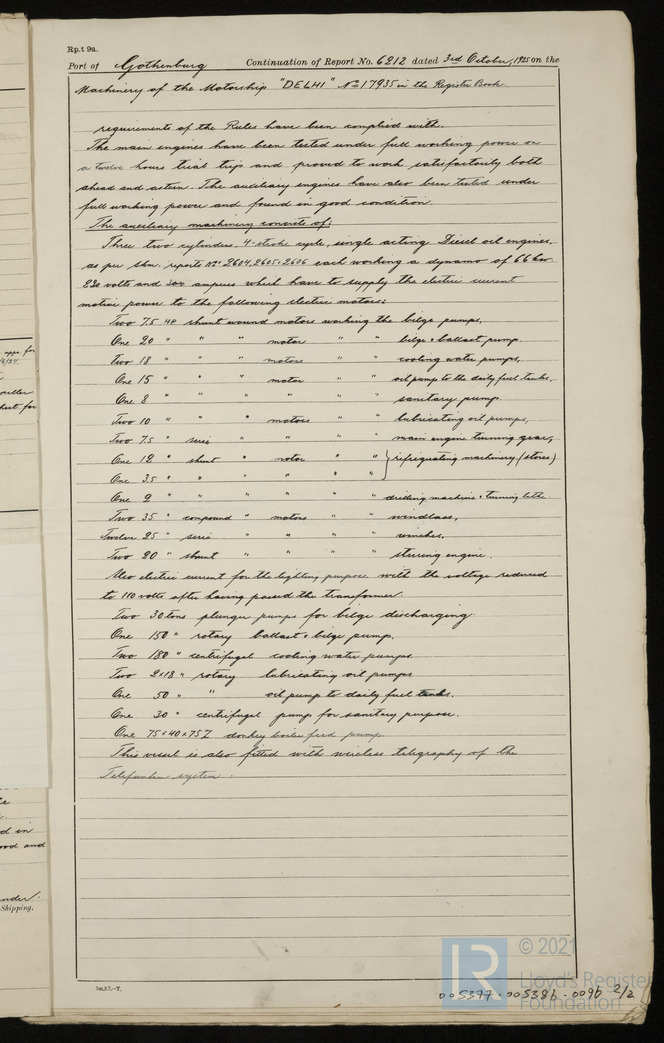 Rp.t 9a.
Port of Gothenburg Continuation of Report No. 6212 dated 3rd October, 1925 on the
Machinery of the Motorship "DELHI" No 17935 in the Register Book.
requirements of the Rules have been complied with.
The main engines have been tested under full working power on
a twelve hours trial trip and proved to work satisfactorily both
ahead and astern. The auxiliary engines have also been tested under
full working power and found in good condition.
The auxiliary machinery consists of:
Three two cylinders, 4-stroke cycle, single acting Diesel oil engines,
as per Skm. reports No. 2604, 2605 & 2606 each working a dynamo of 66 kw
220 volts and 300 amperes which have to supply the electric current
motive power to the following electric motors:
Two 7.5 HP shunt wound motors working the bilge pumps,
One 20 " " " motor " " bilge & ballast pump.
Two 18 " " " motors " " cooling water pumps,
One 15 " " " motor " " oil pump to the daily fuel tanks,
One 8 " " " " " " sanitary pump.
Two 10 " " " motors " " lubricating oil pumps,
Two 7.5 " serie " " " " main engine turning gear,
One 12 " shunt " motor " " } refrigerating machinery (stores)
One 3.5 " " " " " "
One 2 " " " " " " drilling machine & turning lathe.
Two 35 " compound " motors " " windlass,
Twelve 25 " serie " " " " winches,
Two 20 " shunt " " " " steering engine.
Also electric current for the lighting purpose with the voltage reduced
to 110 volts after having passed the transformer.
Two 30 tons plunger pumps for bilge discharging
One 150 " rotary ballast & bilge pump,
Two 180 " centrifugal cooling water pumps
Two 2x18 " rotary lubricating oil pumps
One 50 " " oil pump to daily fuel tanks.
One 30 " centrifugal pump for sanitary purpose.
One 75x40x75 donkey boiler feed pump.
This vessel is also fitted with wireless telegraphy of the
Telefunken system.
appx for
sheet for
d in
ood and
Shipping.
LR
© 2021
Lloyd's Register
Foundation
005377-005386-0090 2/2